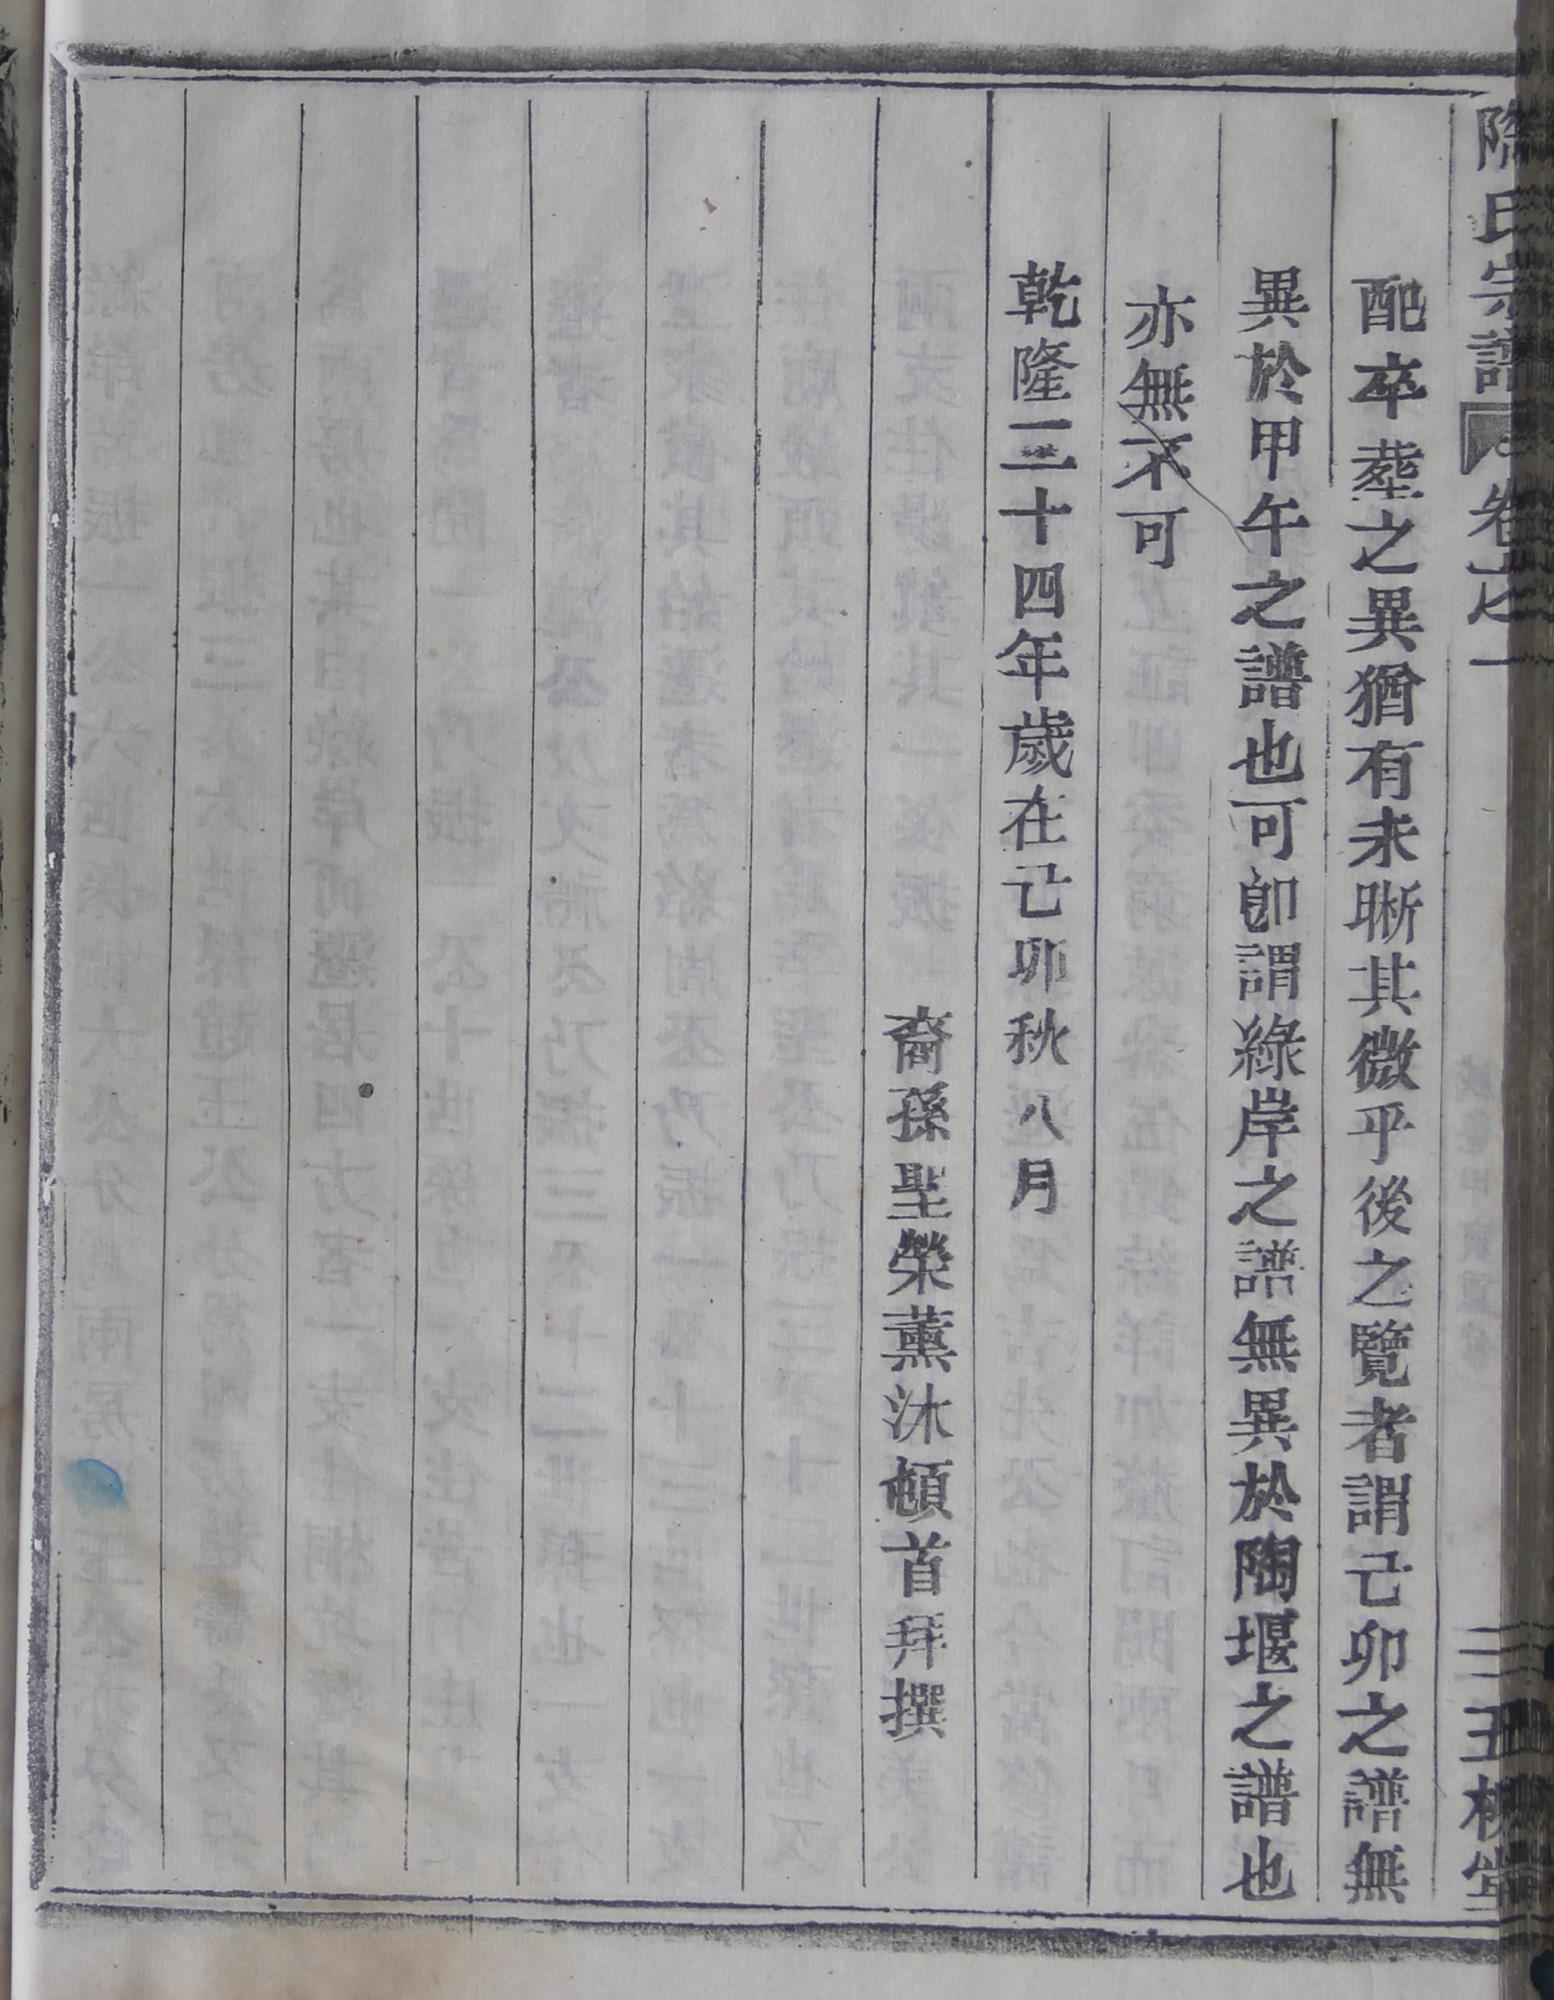 陶氏宗譜 卷之一 二 五柳堂
配卒塟之異猶有未晰其微乎後之覽者謂己卯之譜無
異於甲午之譜也可卽謂綠岸之譜無異於陶堰之譜也
亦無不可
乾隆二十四年歲在己卯秋八月
裔孫聖榮薰沐頓首拜撰